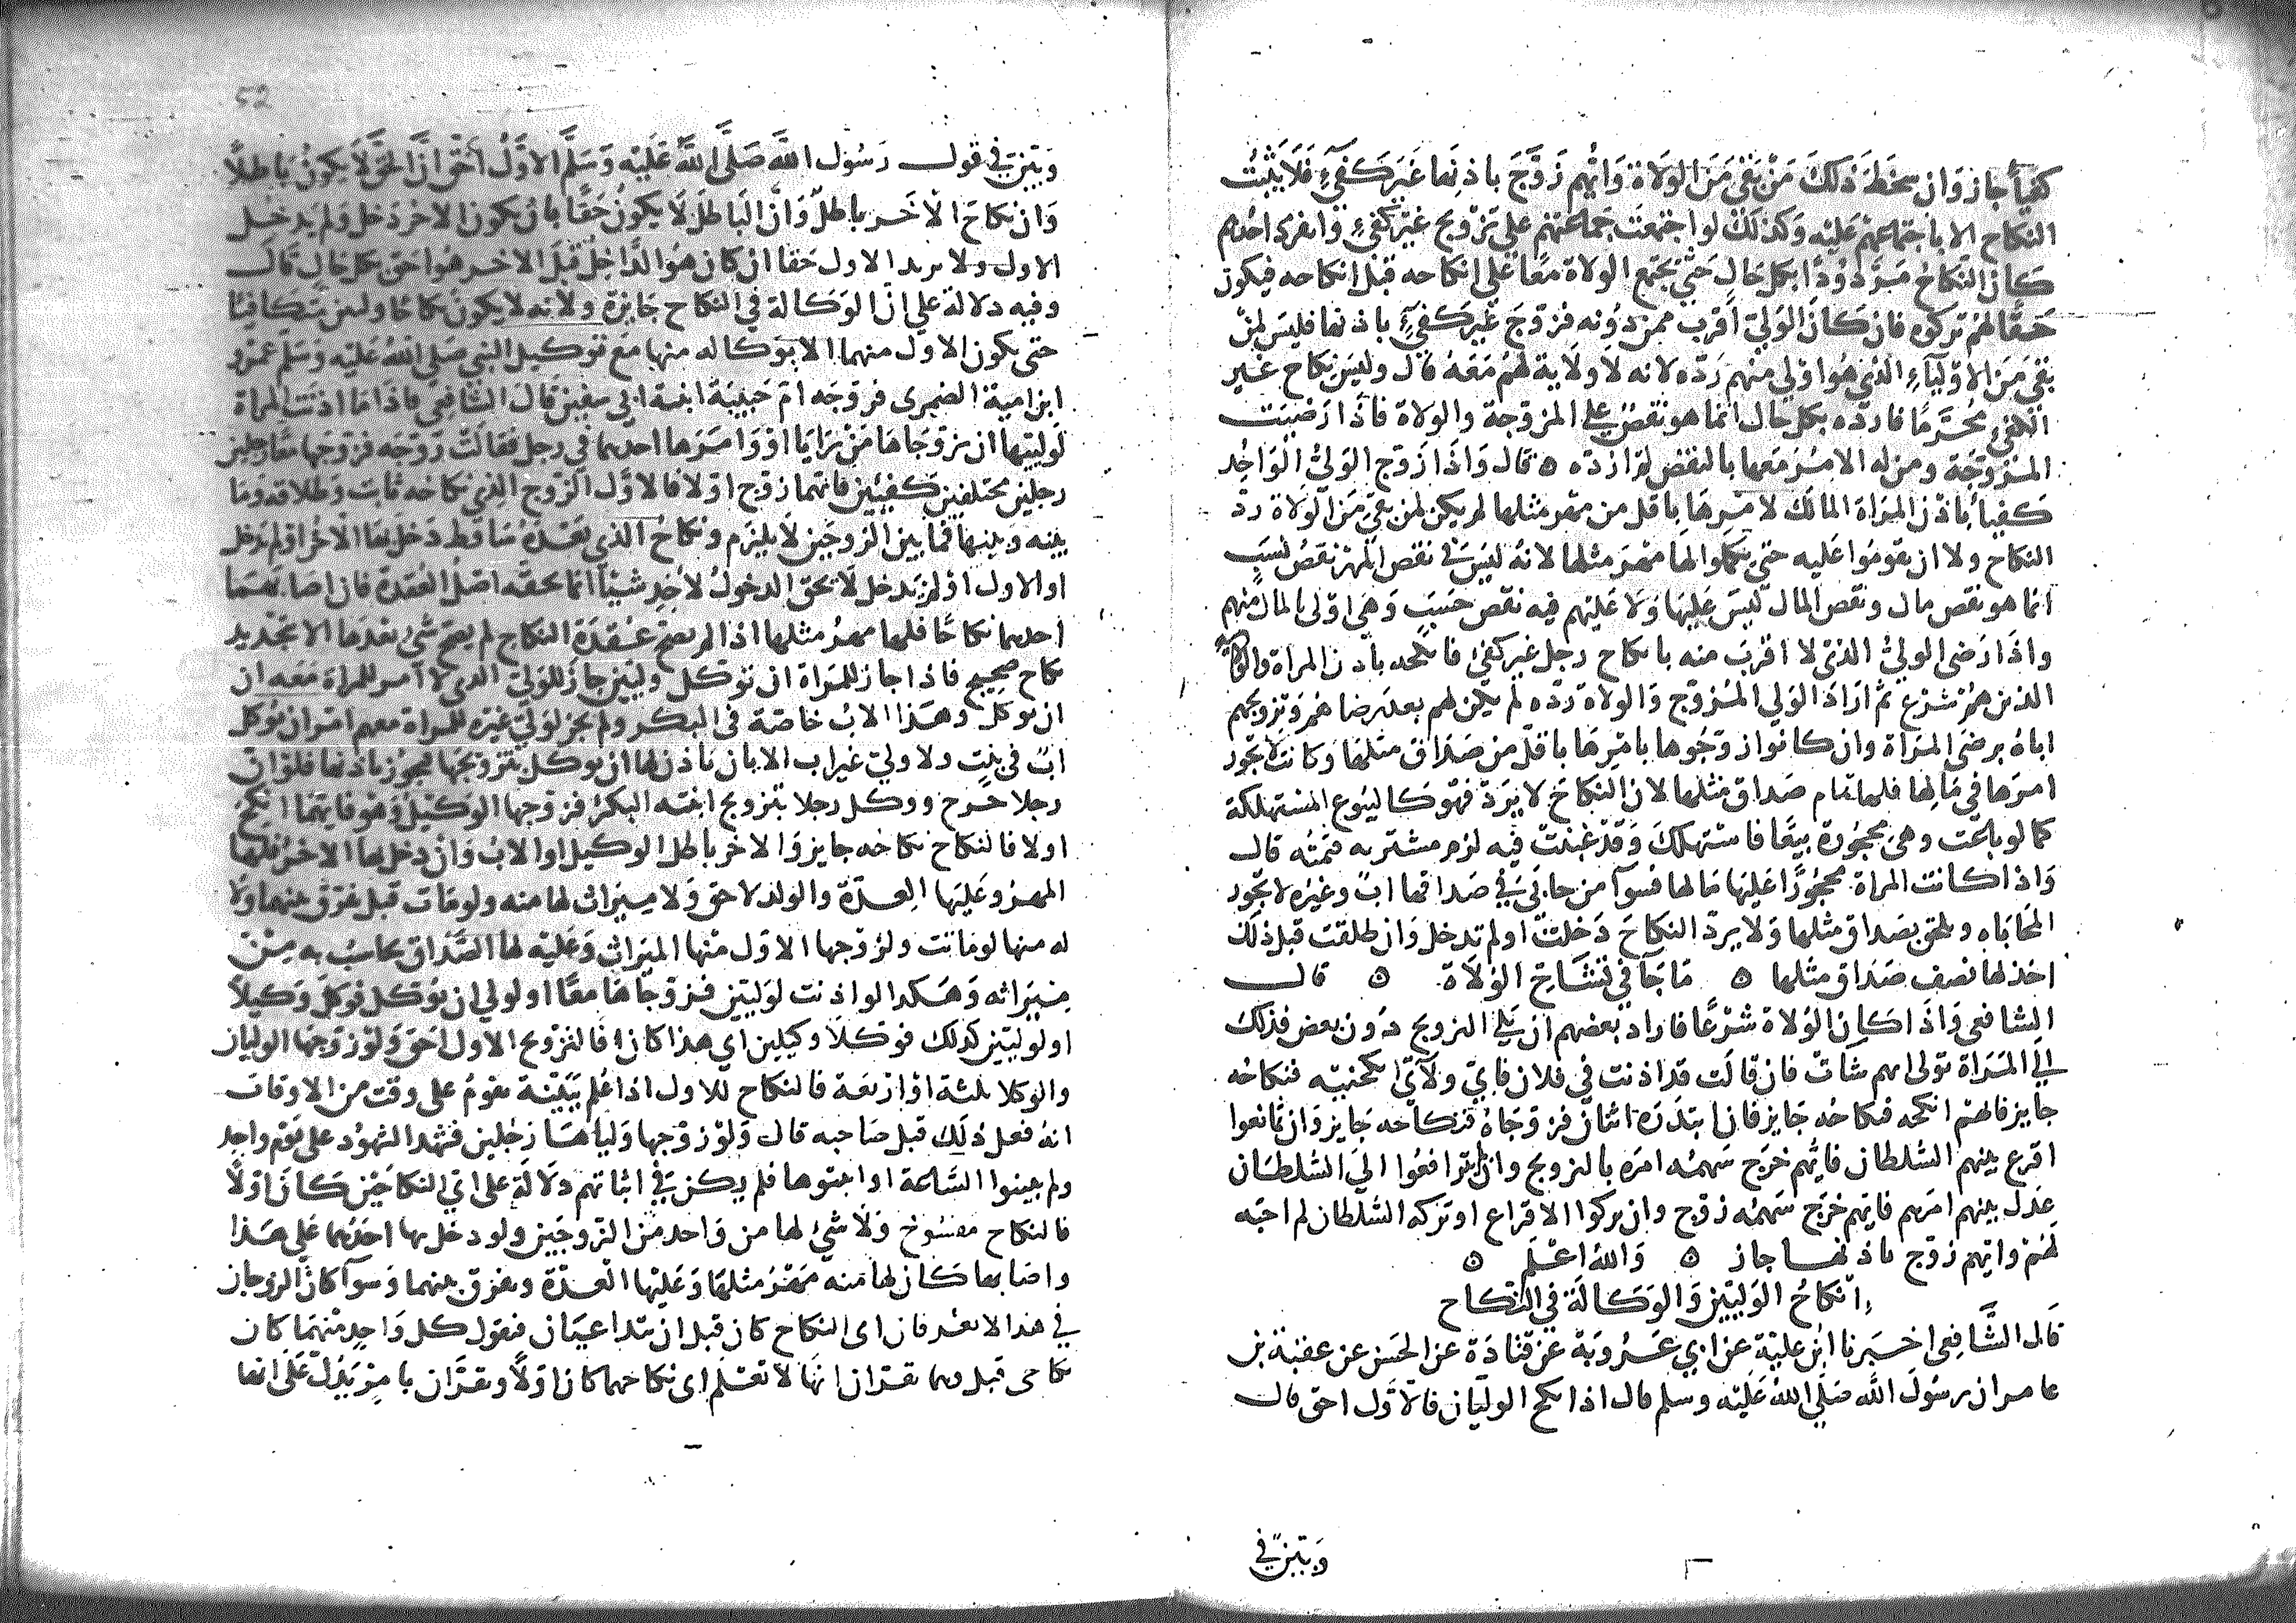 كفيأ جاز وان سخط ذلك من بقي من الولاة وايهم زوج باذنها غير كفيء فلا يثبت
النكاح الا باجتماعهم عليه وكذلك لو اجتمعت جماعتهم علي تزويج غير كفيء وانفرد احدهم
كان النكاح مردودا بكل حال حتي يجتمع الولاة معا علي انكاحه قبل انكاحه فيكون
حقا لهم تركوه فان كان الولي اقرب ممن دونه فزوج غير كفيء باذنها فليس لمن
بقي من الاولياء الذي هو اولي منهم رده لانه لا ولاية لهم معه قال وليس نكاح غير
الكفيء محرما فارده بكل حال انما هو نقص علي المزوجة والولاة فاذا رضيت
المزوجة ومن له الامر معها بالنقص لم ارده ه قال واذا زوج الولي الواحد
كفيأ باذن المراة المالك لامرها باقل من مهر مثلها لم يكن لمن بقي من الولاة رد
النكاح ولا ان يقوموا عليه حتي يكملوا لها مهر مثلها لانه ليس في نقص المهر نقص نسب
انما هو نقص مال ونقص المال ليس عليها ولا عليهم فيه نقص حسب وهي اولي بالمال منهم
واذا رضي الولي الذي لا اقرب منه بانكاح رجل غير كفيء فانكحه باذن المراة والولاة
الذين هم شرع ثم اراد الولي المزوج والولاة رده لم يكن لهم بعد رضاهم وتزويجهم
اياه برضي المراة وان كانوا زوجوها بامرها باقل من صداق مثلها وكانت لا يجوز
امرها في مالها فلها تمام صداق مثلها لان النكاح لا يرد فهو كالبيوع المستهلكة
كما لو باعت وهي محجورة بيعا فاستهلك وقد غبنت فيه لزم مشتريه قيمته قال
واذا كانت المراة محجورا عليها مالها فسوآ من حابى في صداقها اب وغيره لا يجوز
المحاباه ويلحق بصداق مثلها ولا يرد النكاح دخلت او لم تدخل وان طلقت قبل ذلك
اخذ لها نصف صداق مثلها ه ما جآ في تشاح الولاة ه قال
الشافعي واذا كان الولاة شرعا فاراد بعضهم ان يلي التزويج دون بعض فذلك
الي المراة تولي ايهم شات فان قالت قد اذنت في فلان فاي ولاتي انكحنيه فنكاحه
جايز فايهم انكحه فنكاحه جايز فان ابتدره اثنان فزوجاه فنكاحه جايز وان تمانعوا
اقرع بينهم السلطان فايهم خرج سهمه امره بالتزويج وان لم يترافعوا الي السلطان
عدل بينهم امرهم فايهم خرج سهمه زوج وان تركوا الاقراع او تركه السلطان لم احبه
لهم وايهم زوج باذنها جاز ه والله اعلم ه
انكاح الوليين والوكالة في النكاح
قال الشافعي اخبرنا ابن علية عن ابي عروبة عن قتادة عن الحسن عن عقبة بن
عامر ان رسول الله صلي الله عليه وسلم قال اذا نكح الوليان فالاول احق قال
ويتبين في
52
ويتبين في قول رسول الله صلي الله عليه وسلم الاول احق ان الحق لا يكون باطلا
وان نكاح الاخر باطل وان الباطل لا يكون حقا بان يكون الاخر دخل ولم يدخل
الاول ولا يزيد الاول حقا ان كان هو الداخل قبل الاخر هو احق بكل حال قال
وفيه دلالة علي ان الوكالة في النكاح جايزة ولانه لا يكون نكاحا وليين متكافيا
حتي يكون الاول منهما الا بوكاله منها مع توكيل النبي صلي الله عليه وسلم عمرو
ابن امية الضمري فزوجه ام حبيبة ابنة ابي سفين قال الشافعي فاذا ما اذنت المراة
لوليها ان يزوجاها من رايا او وامرها احدهما في رجل فقالت زوجه فزوجها معا رجلين
رجلين مختلفين كفيين فايهما زوج اولا فالاول الزوج الذي نكاحه ثابت وطلاقه وما
بينه وبينها مما بين الزوجين لا يلزم ونكاح الذي بعده ساقط دخل بها الاخر او لم يدخل
او الاول او لم يدخل لا يحق الدخول لاحد شيئا انما يحقه اصل العقدة فان اصابهما
احدهما نكاحا فلها مهر مثلها اذا لم يصح عقدة النكاح لم يصح شيء بعدها الا بتجديد
نكاح صحيح فاذا جاز للمراة ان توكل وليين جاز للولي الذي لا امر للمراة معه ان
ان يوكل وهذا الاب خاصة في البكر ولم يجز لولي غيره للمراة معهم امر ان يوكل
اب في ثيب ولا ولي غير اب الا بان تاذن لها ان يوكل بتزويجها فيجوز باذنها فلو ان
رجلا خرج ووكل رجلا بتزويج ابنته البكر فزوجها الوكيل وهو فايهما انكح
اولا فالنكاح نكاحه جايز والاخر باطل الوكيل او الاب وان دخل بها الاخر فلها
المهر وعليها العدة والولد لاحق ولا ميراث لها منه ولو مات قبل يفرق بينهما ولا
له منها لو ماتت ولزوجها الاول منها الميراث وعليه لها الصداق يحاسب به من
ميراثه وهكذا لو اذنت لوليين فزوجاها معا او لولي ان يوكل فوكل وكيلا
او لوليين كذلك فوكلا وكيلين اي هذا كان فالتزويج الاول احق ولو زوجها الوليان
والوكلا ثلثة او اربعة فالنكاح للاول اذا علم ببينة تقوم علي وقت من الاوقات
انه فعل ذلك قبل صاحبه قال ولو زوجها ولياها رجلين فشهد الشهود علي يوم واحد
ولم يبينوا الساعة او اثبتوها فلم يكن في اثباتهم دلالة علي اي النكاحين كان اولا
فالنكاح مفسوخ ولا شيء لها من واحد من الزوجين ولو دخل بها احدهما علي هذا
واصابها كان لها منه مهر مثلها وعليها العدة ويفرق بينهما وسوآ كان الزوجان
في هذا لا يعرفان اي النكاح كان قبل ان يتداعيان فيقول كل واحد منهما كان
نكاحي قبل وهما يقران انها لا تعلم اي نكاحهما كان اولا ويقران بامر يدل علي انها